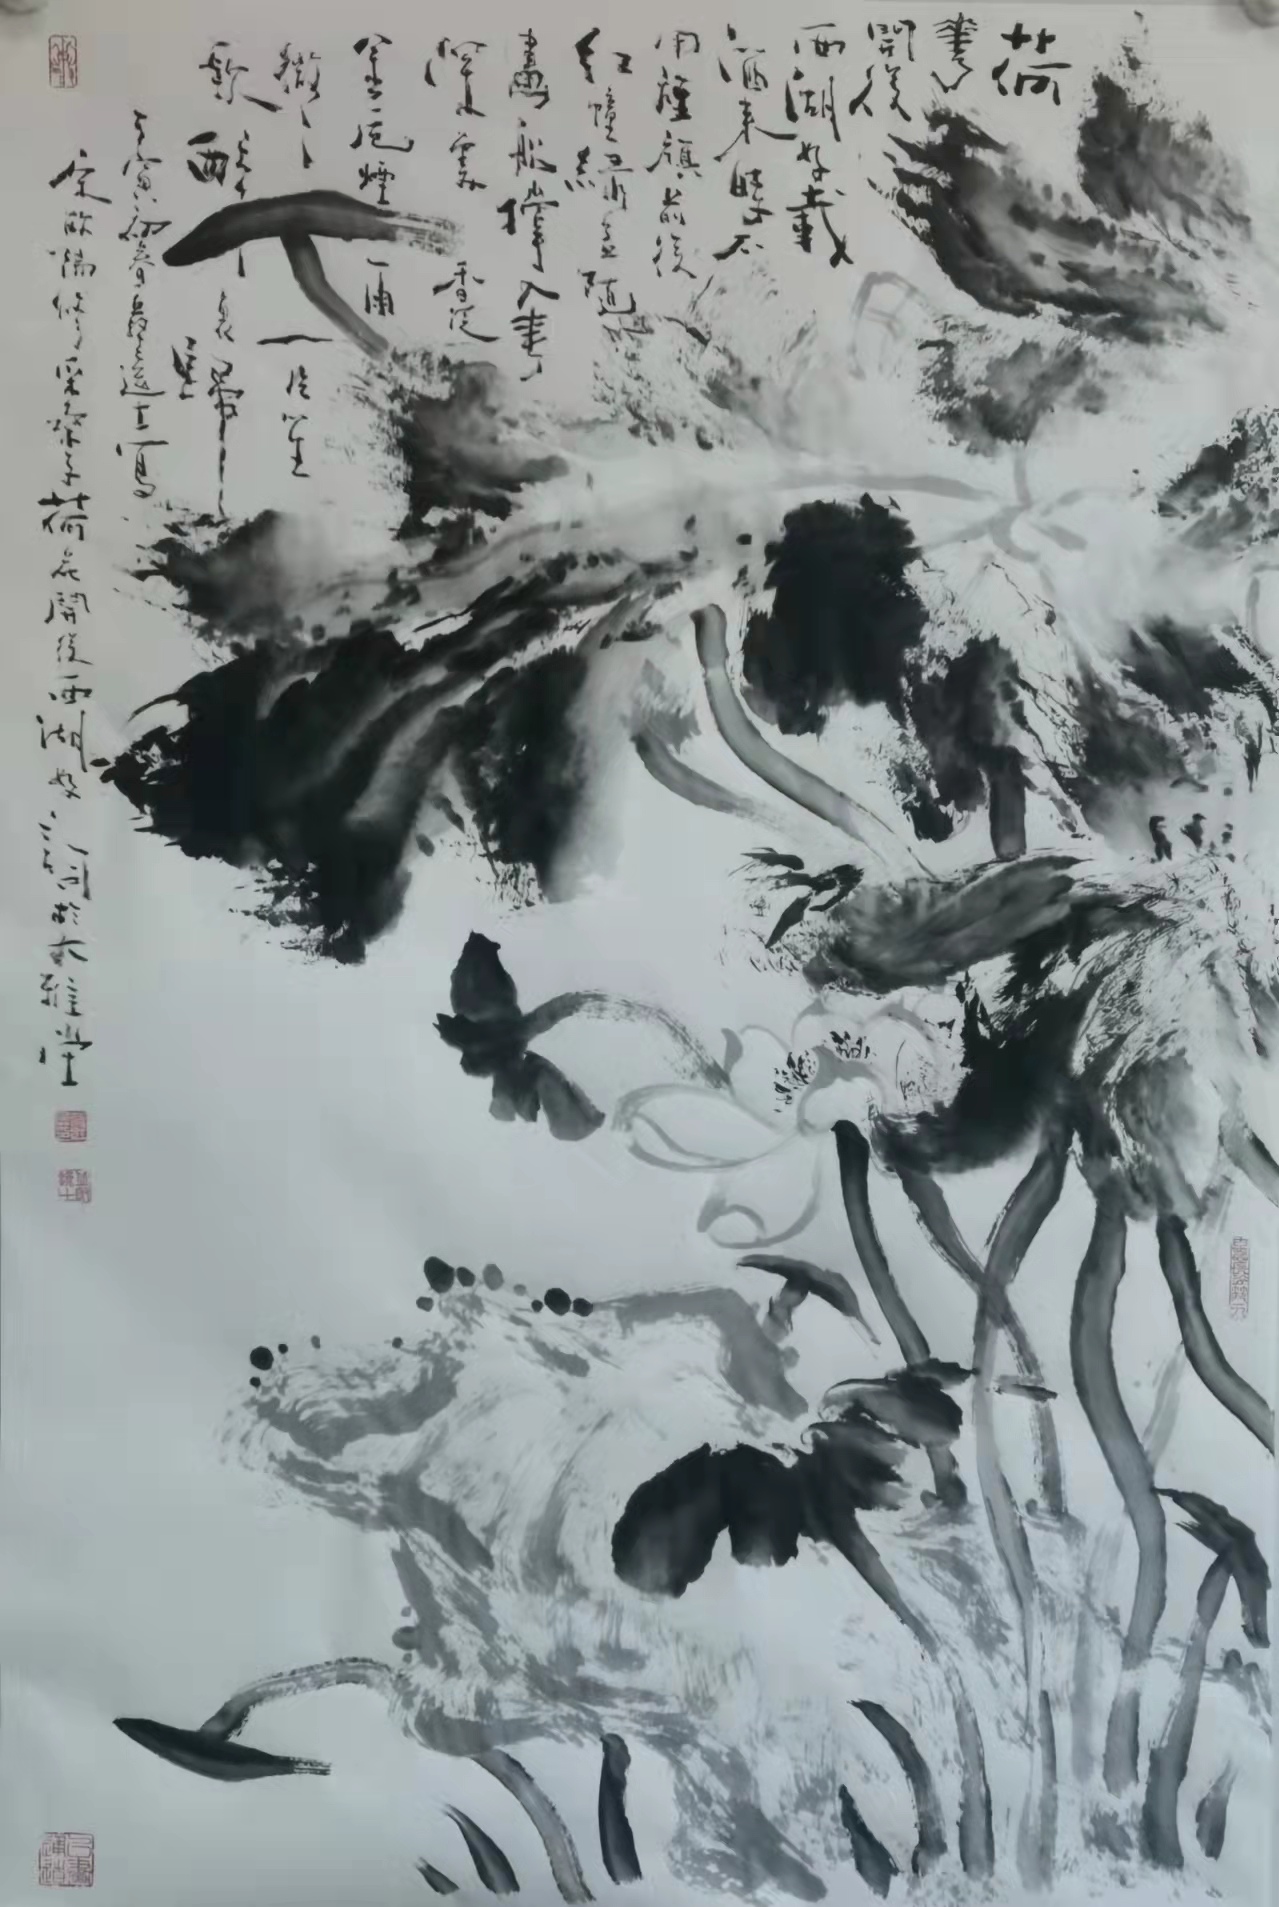 荷
華
開後
西湖好載
酒來時不
用旌旗前後
紅幢綠蓋隨
畫船撐入華
深處香泛
金卮煙雨
微微一片笙
歌醉裏歸
壬寅初春逸士寫
宋歐陽修采桑子荷花開後西湖好詞於大雅堂